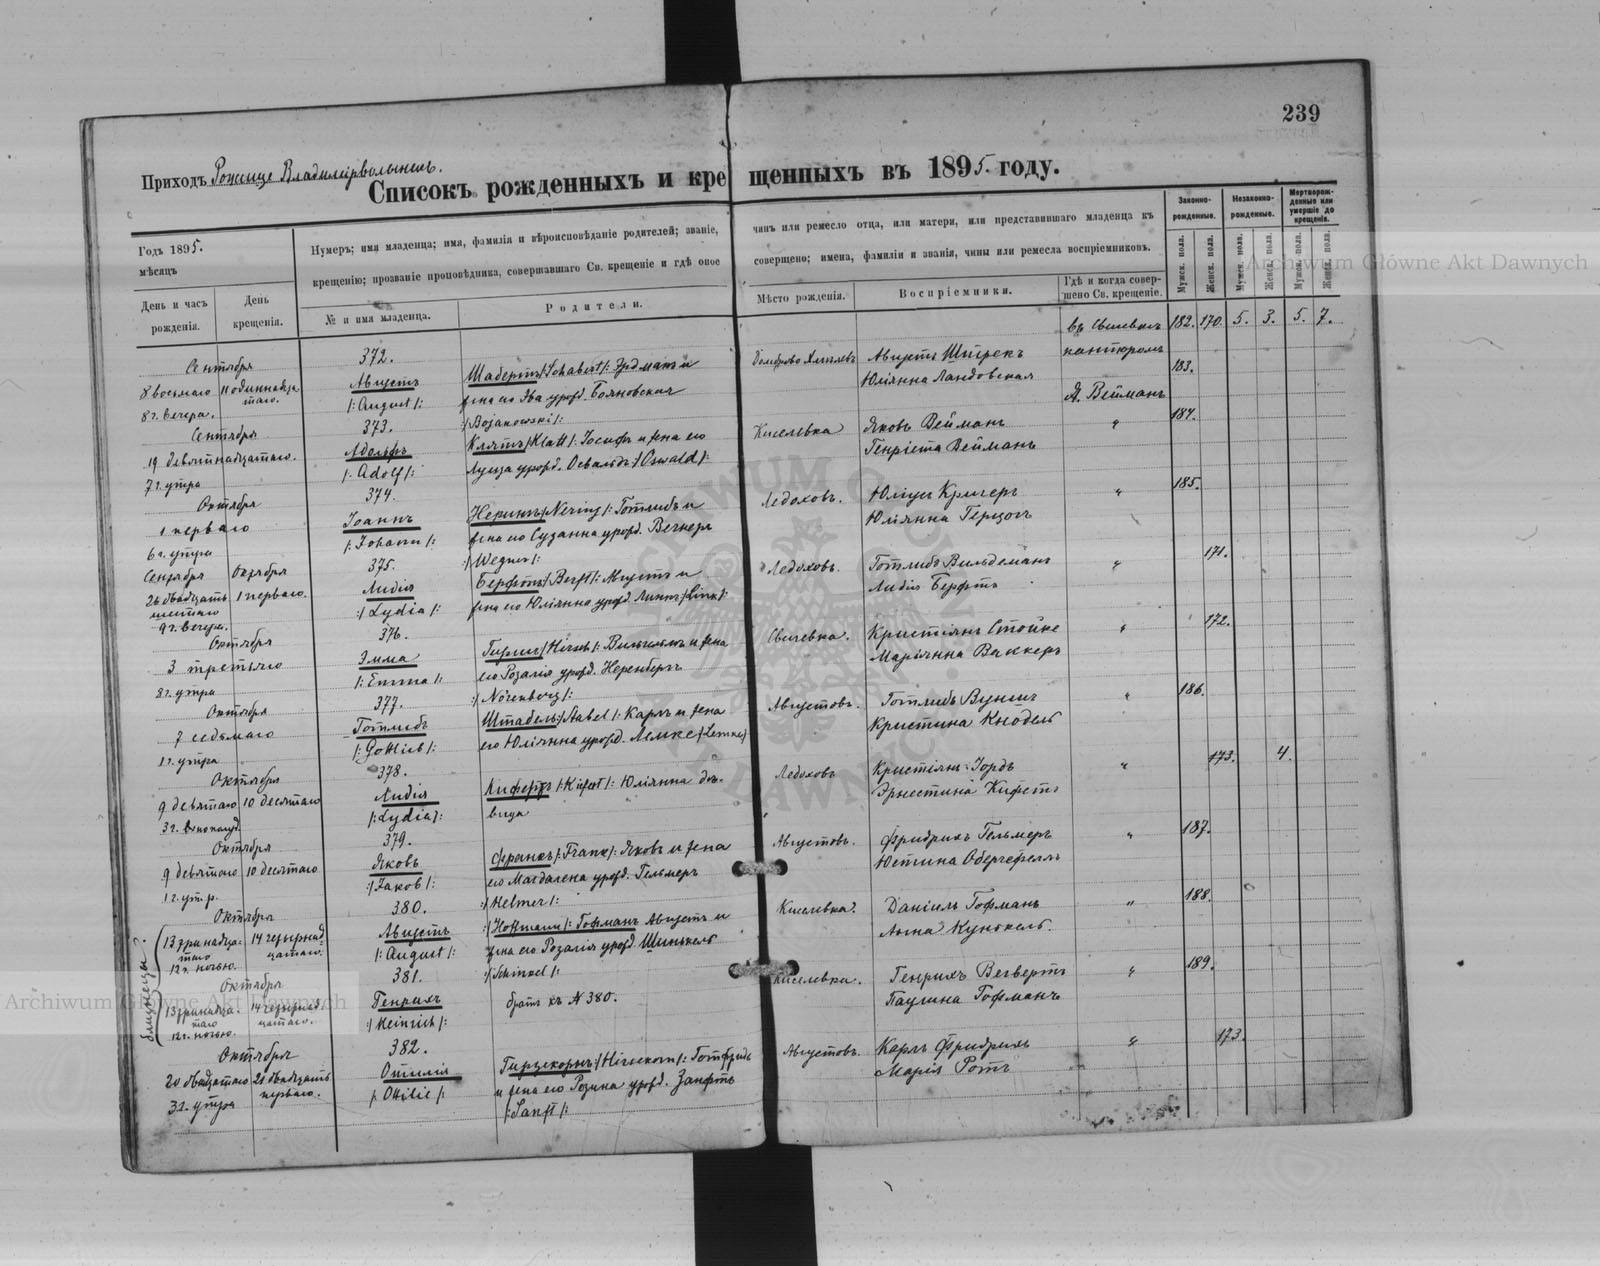 239
Приходъ Рожище Владимірволынск.
Списокъ рожденныхъ и крещенныхъ въ 1895. году.
Годъ 1895.
мѣсяцъ
День и часъ рожденія.
День крещенія.
Нумеръ; имя младенца; имя, фамилія и вѣроисповѣданіе родителей; званіе, чинъ или ремесло отца, или матери, или представившаго младенца къ
крещенію; прозваніе проповѣдника, совершавшаго Св. крещеніе и гдѣ оное совершено; имена, фамиліи и званія, чины или ремесла воспріемниковъ.
№ и имя младенца.
Родители.
Мѣсто рожденія.
Воспріемники.
Гдѣ и когда совершено Св. крещеніе.
Законнорожденные.
Незаконнорожденные.
Мертворожденные или умершіе до крещенія.
Мужск. пола.
Женск. пола.
Мужск. пола.
Женск. пола.
Мужск. пола.
Женск. пола.
182. 170. 5. 3. 5. 7.
Сентября
8 восьмаго
8 ч. вечера.
372.
Августъ
/: August :/
Шабертъ /: Schabert :/ Эрдманъ и
жена его Эва урожд. Бояновская
/: Bojanowski :/
Августъ Штрекъ
Юліянна Ландовская
кантюромъ
Я. Вейманъ
183.
Сентября
19 девятнадцатаго.
7 ч. утра
373.
Адольфъ
/: Adolf :/
Клятъ /: Klatt :/ Іосифъ и жена его
Луиза урожд. Освальдъ /: Oswald :/
Киселевка
Яковъ Вейманъ
Генріета Вейманъ
"
184.
Октября
1 перваго
6 ч. утра
374.
Іоаннъ
/: Johann :/
Нерингъ /: Nering :/ Готлибъ и
жена его Сузанна урожд. Вегнеръ
/: Wegner :/
Ледоховъ.
Юліусъ Кригеръ
Юліянна Герцогъ
"
185.
Сентября
26 двадцать шестаго
9 ч. вечера.
Октября
1 перваго.
375.
Лидія
/: Lydia :/
Берфтъ /: Berft :/ Августъ и
жена его Юліянна урожд. Линкъ /: Link :/
Ледоховъ.
Готлибъ Вильдеманъ
Лидія Берфтъ
"
171.
Октября
3 третьяго
8 ч. утра
376.
Эмма
/: Emma :/
Гиршъ /: Hirsch :/ Вильгельмъ и жена
его Розалія урожд. Неренбергъ
/: Nörenberg :/
Свичевка.
Кристіянъ Стойке
Маріянна Ваккеръ
"
172.
Октября
7 седьмаго
1 ч. утра
377.
Готлибъ
/: Gottlieb :/
Штабель /: Stabel :/ Карлъ и жена
его Юліянна урожд. Лемке /: Lemke :/
Августовъ.
Готлибъ Вуншъ
Кристина Кнодель
"
186.
Октября
9 девятаго
10 десятаго
378.
Лидія
/: Lydia :/
Юліянна дѣвица
Ледоховъ
Эрнестина
"
173. 4.
Октября
9 девятаго
1 ч. утр.
10 десятаго
379.
Яковъ
/: Jakob :/
Франкъ /: Frank :/ Яковъ и жена
его Магдалена урожд. Гельмеръ
/: Helmer :/
Августовъ.
Фридрихъ Гельмеръ
Юстина Обергефелль
"
187.
близнецы?
Октября
13 тринадцатаго
12 ч. ночью.
14 четырнадцатаго.
380.
Августъ
/: August :/
/: Hoffmann :/ Гофманъ Августъ и
жена его Розалія урожд. Шинкель
/: Schinkel :/
Киселевка.
Даніилъ Гофманъ
Анна Кункель.
"
188.
Октября
13 тринадцатаго
12 ч. ночью.
14 четырнадцатаго.
381.
Генрихъ
/: Heinrich :/
братъ къ № 380.
Киселевка.
Генрихъ Вегвертъ
Паулина Гофманъ
"
189.
Октября
20 двадцатаго
3 ч. утра
21 двадцать перваго.
382.
Отилія
/: Ottilie :/
Гирзекорнъ /: Hirsekorn :/ Готфридъ
и жена его Розина урожд. Занфтъ
/: Sanft :/
Августовъ.
Карлъ Фридрихъ
Марія Ротъ
"
173.
Archiwum Główne Akt Dawnych
Archiwum Główne Akt Dawnych